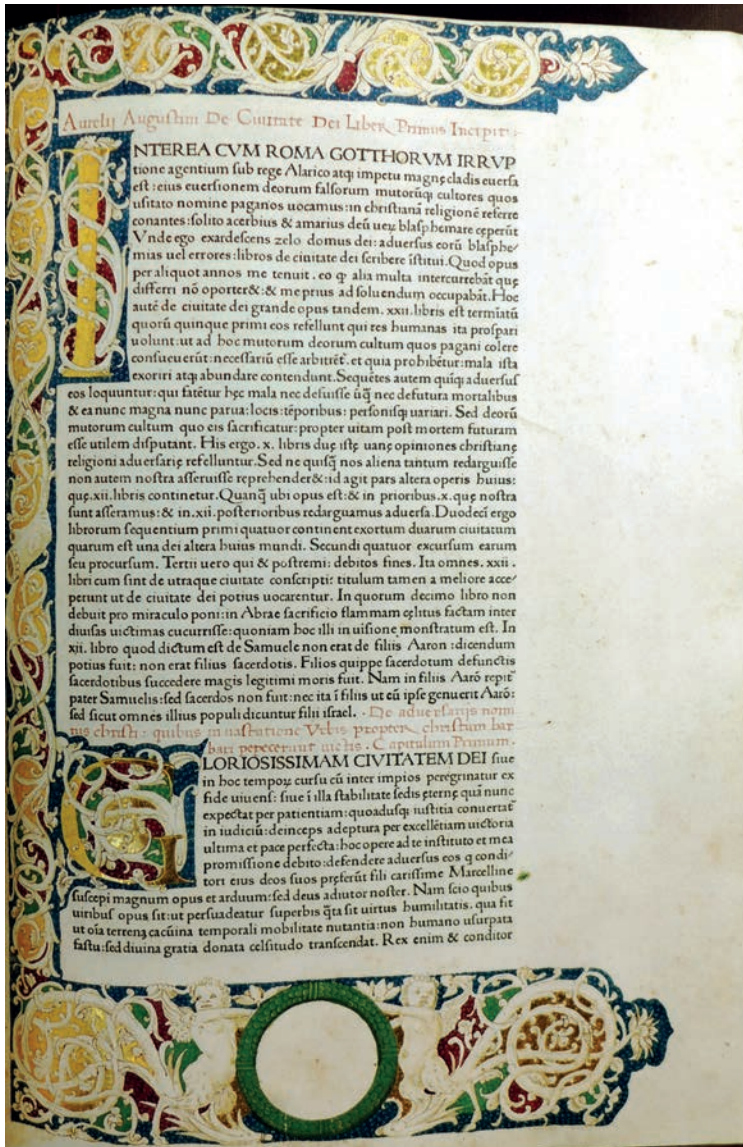 Aurelij Augustini De Ciuitate Dei Liber Primus Incipit:
INTEREA CVM ROMA GOTTHORVM IRRVP
tione agentium sub rege Alarico atq; impetu magnę cladis euersa
est: eius euersionem deorum falsorum mutorūq; cultores quos
usitato nomine paganos uocamus: in christianā religionē referre
conantes: solito acerbius & amarius deū ueꝝ blasphemare cęperūt
Vnde ego exardescens zelo domus dei: aduersus eorū blasphe⸗
mias uel errores: libros de ciuitate dei scribere īstitui. Quod opus
per aliquot annos me tenuit. eo ꝙ alia multa intercurrebāt quę
differri nō oporter&: & me prius ad soluendum occupabāt. Hoc
autē de ciuitate dei grande opus tandem. xxii. libris est termīatū
quorū quinque primi eos refellunt qui res humanas ita prospari
uolunt: ut ad hoc mutorum deorum cultum quos pagani colere
consueuerūt: necessariū esse arbitrēt͛. et quia prohibētur: mala ista
exoriri atq; abundare contendunt. Sequētes autem quīq; aduersus
eos loquuntur: qui fatētur hęc mala nec defuisse ūq̄ nec defutura mortalibus
& ea nunc magna nunc parua: locis: tēporibus: personisq; uariari. Sed deorū
mutorum cultum quo eis sacrificatur: propter uitam post mortem futuram
esse utilem disputant. His ergo. x. libris duę istę uanę opiniones christianę
religioni aduersarię refelluntur. Sed ne quisq̄ nos aliena tantum redarguisse
non autem nostra asseruisse reprehender&: id agit pars altera operis huius:
quę. xii. libris continetur. Quanq̄ ubi opus est: & in prioribus. x. quę nostra
sunt asseramus: & in. xii. posterioribus redarguamus aduersa. Duodecī ergo
librorum sequentium primi quatuor continent exortum duarum ciuitatum
quarum est una dei altera huius mundi. Secundi quatuor excursum earum
seu procursum. Tertii uero qui & postremi: debitos fines. Ita omnes. xxii.
libri cum sint de utraque ciuitate conscripti: titulum tamen a meliore acce⸗
perunt ut de ciuitate dei potius uocarentur. In quorum decimo libro non
debuit pro miraculo poni: in Abrae sacrificio flammam cęlitus factam inter
diuisas uictimas cucurrisse: quoniam hoc illi in uisione monstratum est. In
xii. libro quod dictum est de Samuele non erat de filiis Aaron: dicendum
potius fuit: non erat filius sacerdotis. Filios quippe sacerdotum defunctis
sacerdotibus succedere magis legitimi moris fuit. Nam in filiis Aarō repit͛
pater Samuelis: sed sacerdos non fuit: nec ita ī filiis ut eū ipse genuerit Aarō:
sed sicut omnes illius populi dicuntur filii israel. · De aduersarijs nomi
nis christi: quibus in uastratione Vrbis propter christum bar
bari pepecerunt uictis. Capitulum Primum.
GLORIOSISSIMAM CIVITATEM DEI siue
in hoc tempoꝝ cursu cū inter impios peregrinatur ex
fide uiuens: siue ī illa stabilitate sedis ęternę quā nunc
expectat per patientiam: quoadusq; iustitia conuertat͛
in iudiciū: deinceps adeptura per excellētiam uictoria
ultima et pace perfecta: hoc opere ad te instituto et mea
promissione debito: defendere aduersus eos q condi⸗
tori eius deos suos pręferūt fili carissime Marcelline
suscepi magnum opus et arduum: sed deus adiutor noster. Nam scio quibus
uiribus opus sit: ut persuadeatur superbis q̄ta sit uirtus humilitatis. qua fit
ut oīa terrena cacuina temporali mobilitate nutantia: non humano usurpata
fastu: sed diuina gratia donata celsitudo transcendat. Rex enim & conditor